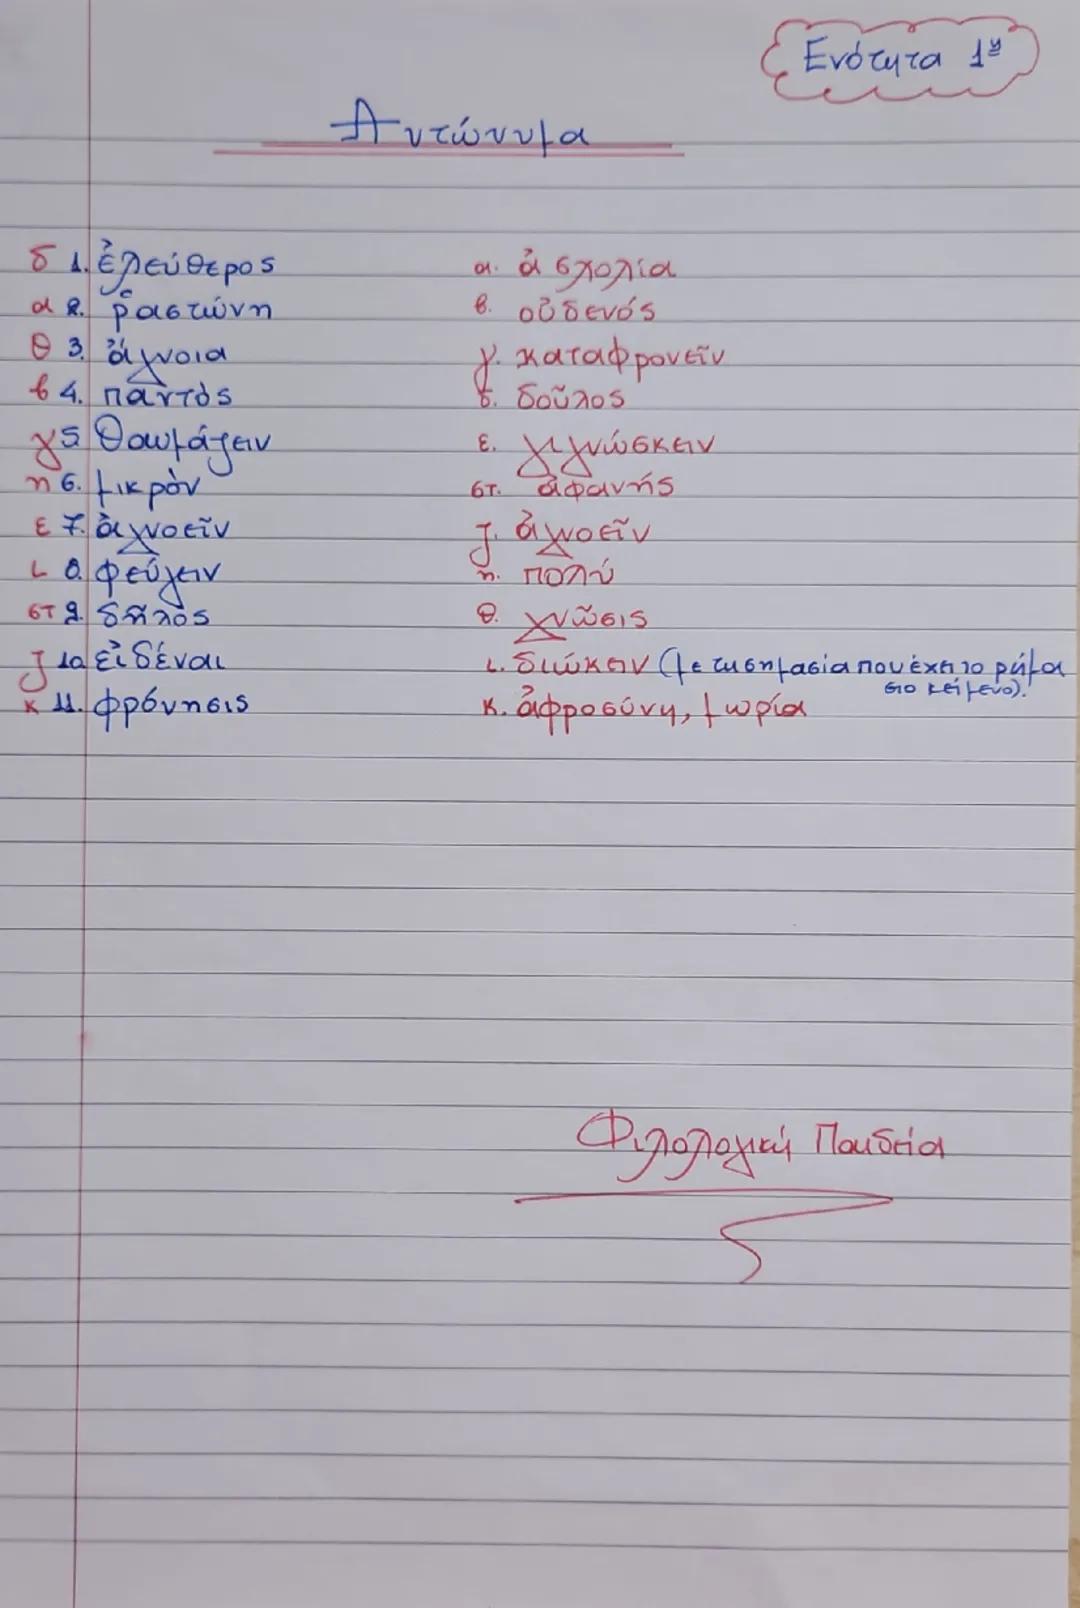 Ενότητα 1η
Αντώνυμα
δ 1. ἐλεύθερος α. ἀσχολία
α 2. ῥᾳστώνη β. οὐδενός
θ 3. ἄγνοια γ. καταφρονεῖν
β 4. παντὸς δ. δοῦλος
γ 5. θαυμάζειν ε. γιγνώσκειν
η 6. μικρὸν στ. ἀφανής
ε 7. ἀγνοεῖν ζ. ἀγνοεῖν
ι 8. φεύγειν η. πολύ
στ 9. δῆλος θ. γνῶσις
ζ 10 εἰδέναι ι. διώκειν (με τη σημασία που έχει το ρήμα
στο κείμενο).
κ 11. φρόνησις κ. ἀφροσύνη, μωρία
Φιλολογική Παιδεία